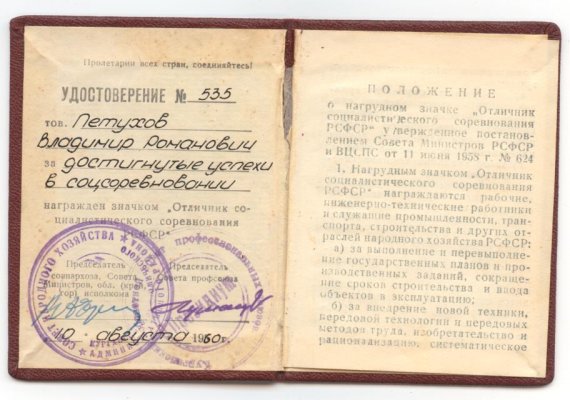 Пролетарии всех стран, соединяйтесь!
УДОСТОВЕРЕНИЕ № 535
тов. Петухов
Владимир Романович
за достигнутые успехи
в соцсоревновании
награжден значком „Отличник со-
циалистического соревнования
РСФСР“
СОВЕТ НАРОДНОГО ХОЗЯЙСТВА
профессиональных
Председатель
совнархоза, Совета
Министров, обл. (край,
гор) исполкома
Председатель
Совета профсоюза
10 августа 1960 г.
ПОЛОЖЕНИЕ
о нагрудном значке „Отличник
социалистического соревнования
РСФСР“ утвержденное постанов-
лением Совета Министров РСФСР
и ВЦСПС от 11 июня 1958 г. № 624
1. Нагрудным значком „Отличник
социалистического соревнования
РСФСР“ награждаются рабочие,
инженерно-технические работники
и служащие промышленности, тран-
спорта, строительства и других от-
раслей народного хозяйства РСФСР:
а) за выполнение и перевыполне-
ние государственных планов и про-
изводственных заданий, сокраще-
ние сроков строительства и ввода
объектов в эксплуатацию;
б) за внедрение новой техники,
передовой технологии и передовых
методов труда, изобретательство и
рационализацию, систематическое